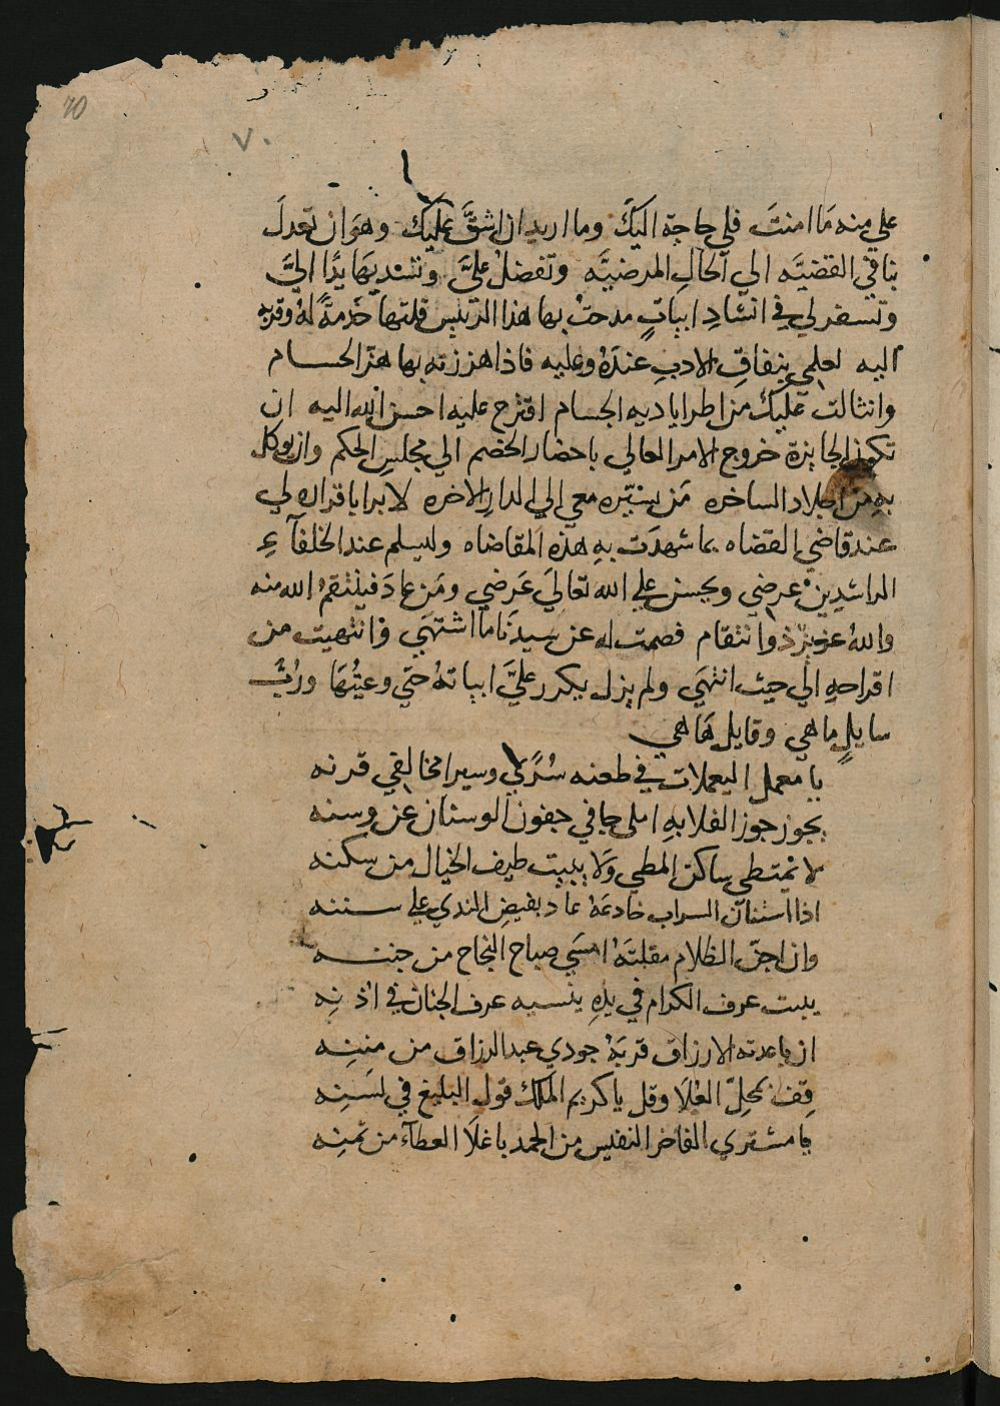 70
٧٠
علي منه مَا امنتَ فلي حاجة اليكَ وما اريد ان اشقَّ عليك وهوَ ان تعدلَ
بنا في القضيَّه الي الحالِ المرضيَّه وتفضلُ عليَّ وتسديهَا يدًا اليَّ
وتسفر لي في انشادِ ابياتٍ مدحتُ بها هذا الرئيس قلتها خدمةً لهُ وقربه
اليه لعلمي بنفاقِ الادبِ عندَهُ وعليه فاذا هززته بها هز الحسام
وانثالت عليك من اياديه الجسام اقترح عليه احسن الله اليه ان
تكون الجايزة خروج الامر العالي باحضار الخصم الي مجلس الحكم وان يوكل
بهِ من اجلاد الساخره مَن يسيّره معي الي الدارِ الاخره لا برا باقراره لي
عند قاضي القضاه بما شهدَت بهِ هذه المقاضاه وليسلم عند الخلفآءِ
الراشدِينْ عرضي ويحسن علي الله تعاليَ عَرضي ومَن عادَ فينتقمُ الله منه
واللهُ عزيزٌ ذوا انتقام فصمت له عن سيدنَا ما اشتهَي وانتهيت من
اقراحهِ الي حيث انتهَي ولم يزل يكرر عليَّ ابياتهُ حتي وعيتُهَا وربَّ
سايلٍ ما هي وقايل هَا هي
يا معمل اليعملات في ظعنه سُرًي وسيرا مخالفي قرنه
يجوز جوز الفلا بهِ املٌ جافي جفون الوسنان عن وسنه
لا يمتطي ساكن المطي وَلا يبيت طيف الخيال من سكنه
اذا استنان السراب خادعَهُ عاد بفيضِ الندي علي سننه
وان اجنّ الظلام مقلتَهُ امسَي صباح النجاح من جننه
يبيت عرف الكرام في يدِهِ ينسيه عرف الجنان في اذنِه
ان باعدته الارزاق قربَهُ جودي عبد الرزاق من مننِه
قِف بمحلِّ العُلَا وقل يا كريم الملك قول البليغ في لسَنِه
يا مشتري الفاخر النفيس من الحمد باغلَا العطآء من ثمنِه